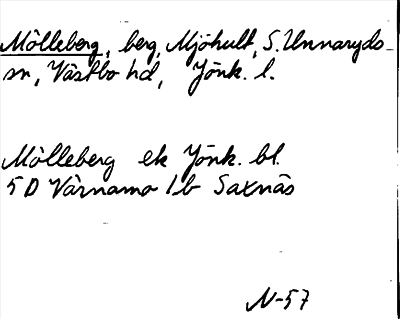 Mölleberg, berg, Mjöhult, S. Unnaryds-
sn, Västbo hd, Jönk. l.
Mölleberg ek Jönk. bl.
5D Värnamo 1b Saxnäs
N-57